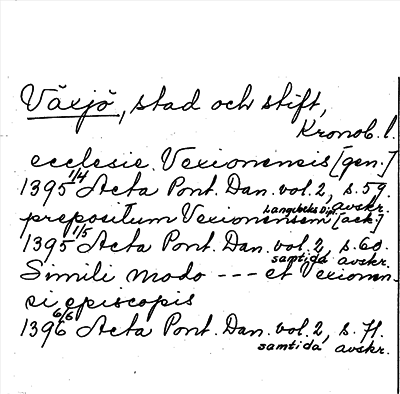 Växjö, stad och stift,
Kronob. l.
ecclesie Vexionensis [gen.]
1395 1/4 Acta Pont. Dan. vol. 2, s. 59.
Langebeks Dipl. avskr.
prepositum Vexionensem [ack]
1395 1/5 Acta Pont. Dan. vol. 2, s. 60.
samtida avskr.
Simili modo --- et Vexionen-
si episcopis
1396 6/6 Acta Pont. Dan. vol. 2, s. 71.
samtida avskr.